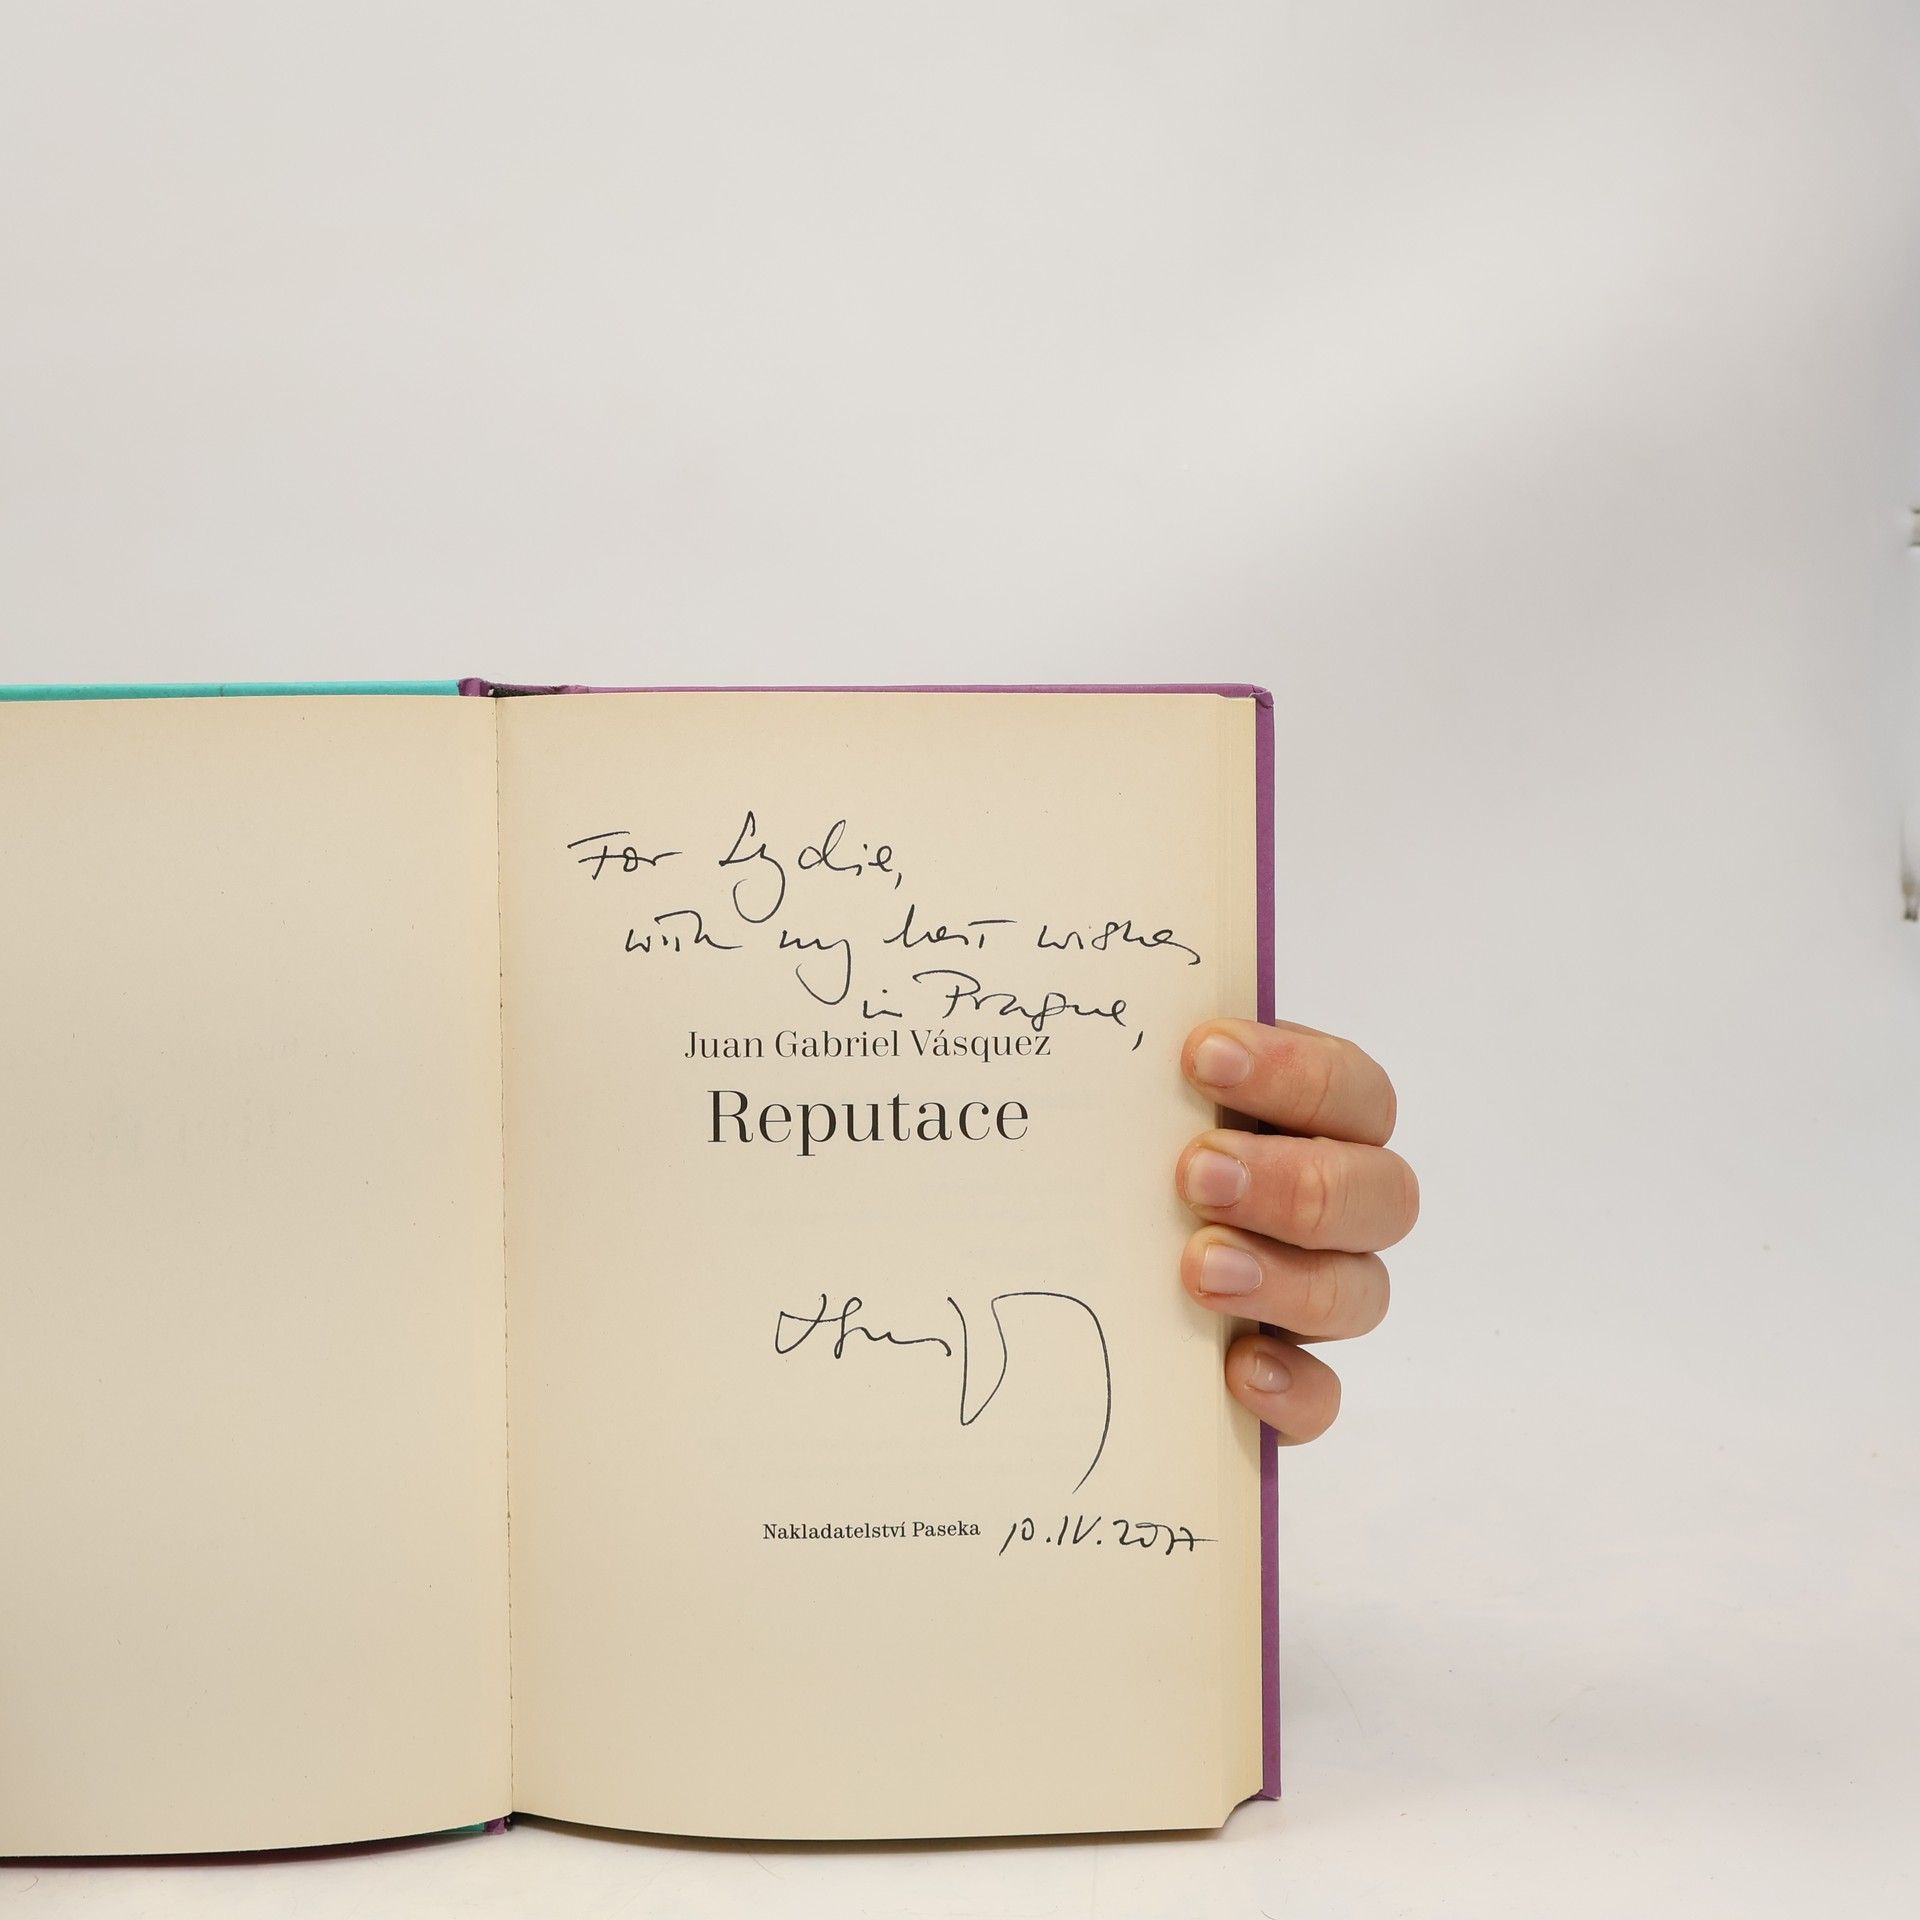 For Lydie,
with my best wishes
in Prague,
Juan Gabriel Vásquez
Reputace
Nakladatelství Paseka 10.IV.2017